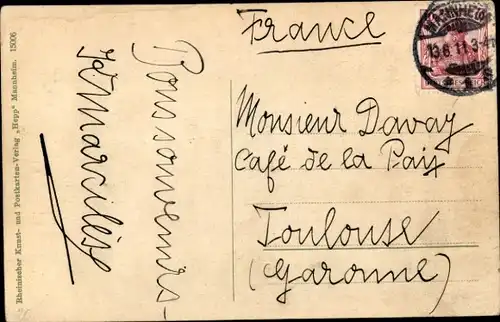 France
MANNHEIM
13.6.11.3-4
Monsieur Davay
Café de la Paix
Toulouse
(Garonne)
Bons souvenirs-
Rheinischer Kunst- und Postkarten-Verlag „Hepp" Mannheim. 15006